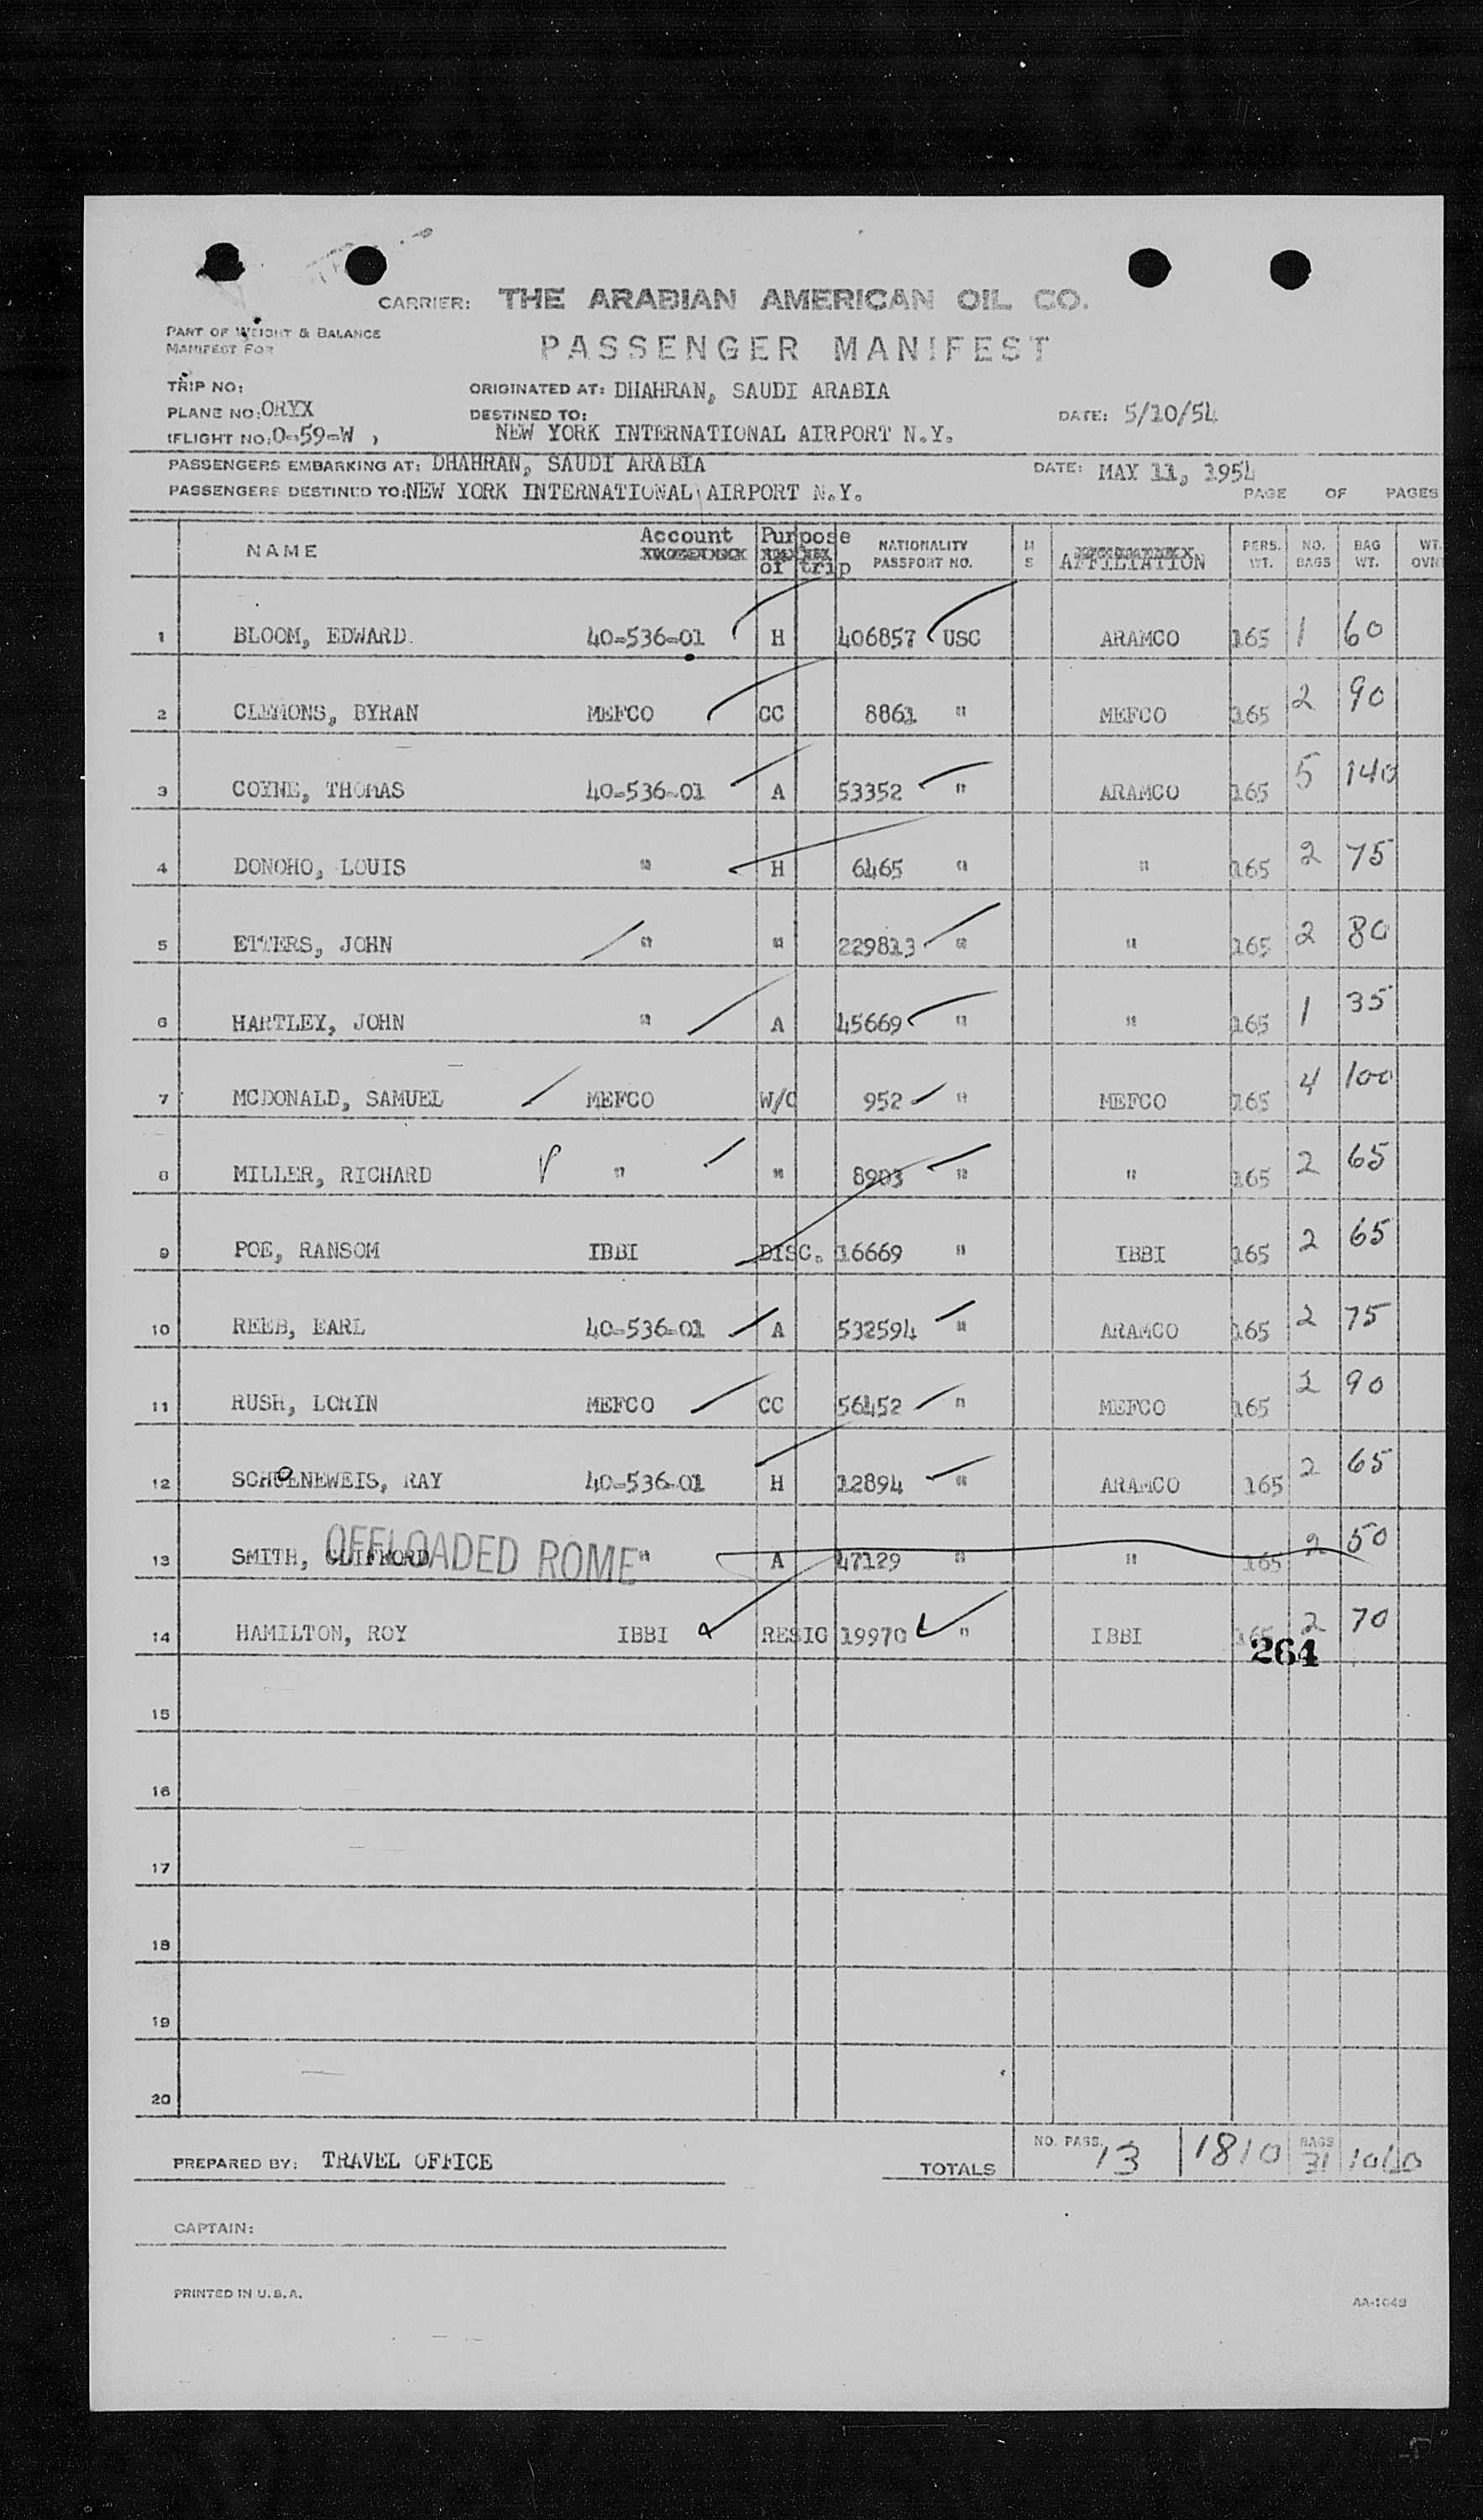 CARRIER: THE ARABIAN AMERICAN OIL CO.
PART OF WEIGHT & BALANCE
MANIFEST FOR
PASSENGER MANIFEST
TRIP NO:
ORIGINATED AT: DHAHRAN, SAUDI ARABIA
PLANE NO: ORYX
DESTINED TO:
DATE: 5/10/54
(FLIGHT NO: O-59-W )
NEW YORK INTERNATIONAL AIRPORT N.Y.
PASSENGERS EMBARKING AT: DHAHRAN, SAUDI ARABIA
DATE: MAY 11, 1954
PASSENGERS DESTINED TO: NEW YORK INTERNATIONAL AIRPORT N.Y.
PAGE OF PAGES
NAME Account Purpose of trip NATIONALITY PASSPORT NO. M S AFFILIATION PERS. WT. NO. BAGS BAG WT. WT. OVN
1 BLOOM, EDWARD. 40-536-01 H 406857 USC ARAMCO 165 1 60
2 CLEMONS, BYRAN MEFCO CC 8861 " MEFCO 165 2 90
3 COYNE, THOMAS 40-536-01 A 53352 " ARAMCO 165 5 140
4 DONOHO, LOUIS " H 6465 " " 165 2 75
5 ETTERS, JOHN " " 229813 " " 165 2 80
6 HARTLEY, JOHN " A 45669 " " 165 1 35
7 MCDONALD, SAMUEL MEFCO W/C 952 " MEFCO 165 4 100
8 MILLER, RICHARD " " 8903 " " 165 2 65
9 POE, RANSOM IBBI DISC. 16669 " IBBI 165 2 65
10 REEB, EARL 40-536-01 A 532594 " ARAMCO 165 2 75
11 RUSH, LORIN MEFCO CC 56452 " MEFCO 165 2 90
12 SCHOENEWEIS, RAY 40-536-01 H 12894 " ARAMCO 165 2 65
13 SMITH, CLIFFORD " A 47129 " " 165 2 50
OFFLOADED ROME
14 HAMILTON, ROY IBBI RESIG 19970 " IBBI 165 2 70
264
15
16
17
18
19
20
PREPARED BY: TRAVEL OFFICE
TOTALS NO. PASS. 13 1810 BAGS 31
CAPTAIN:
PRINTED IN U.S.A.
AA-1049